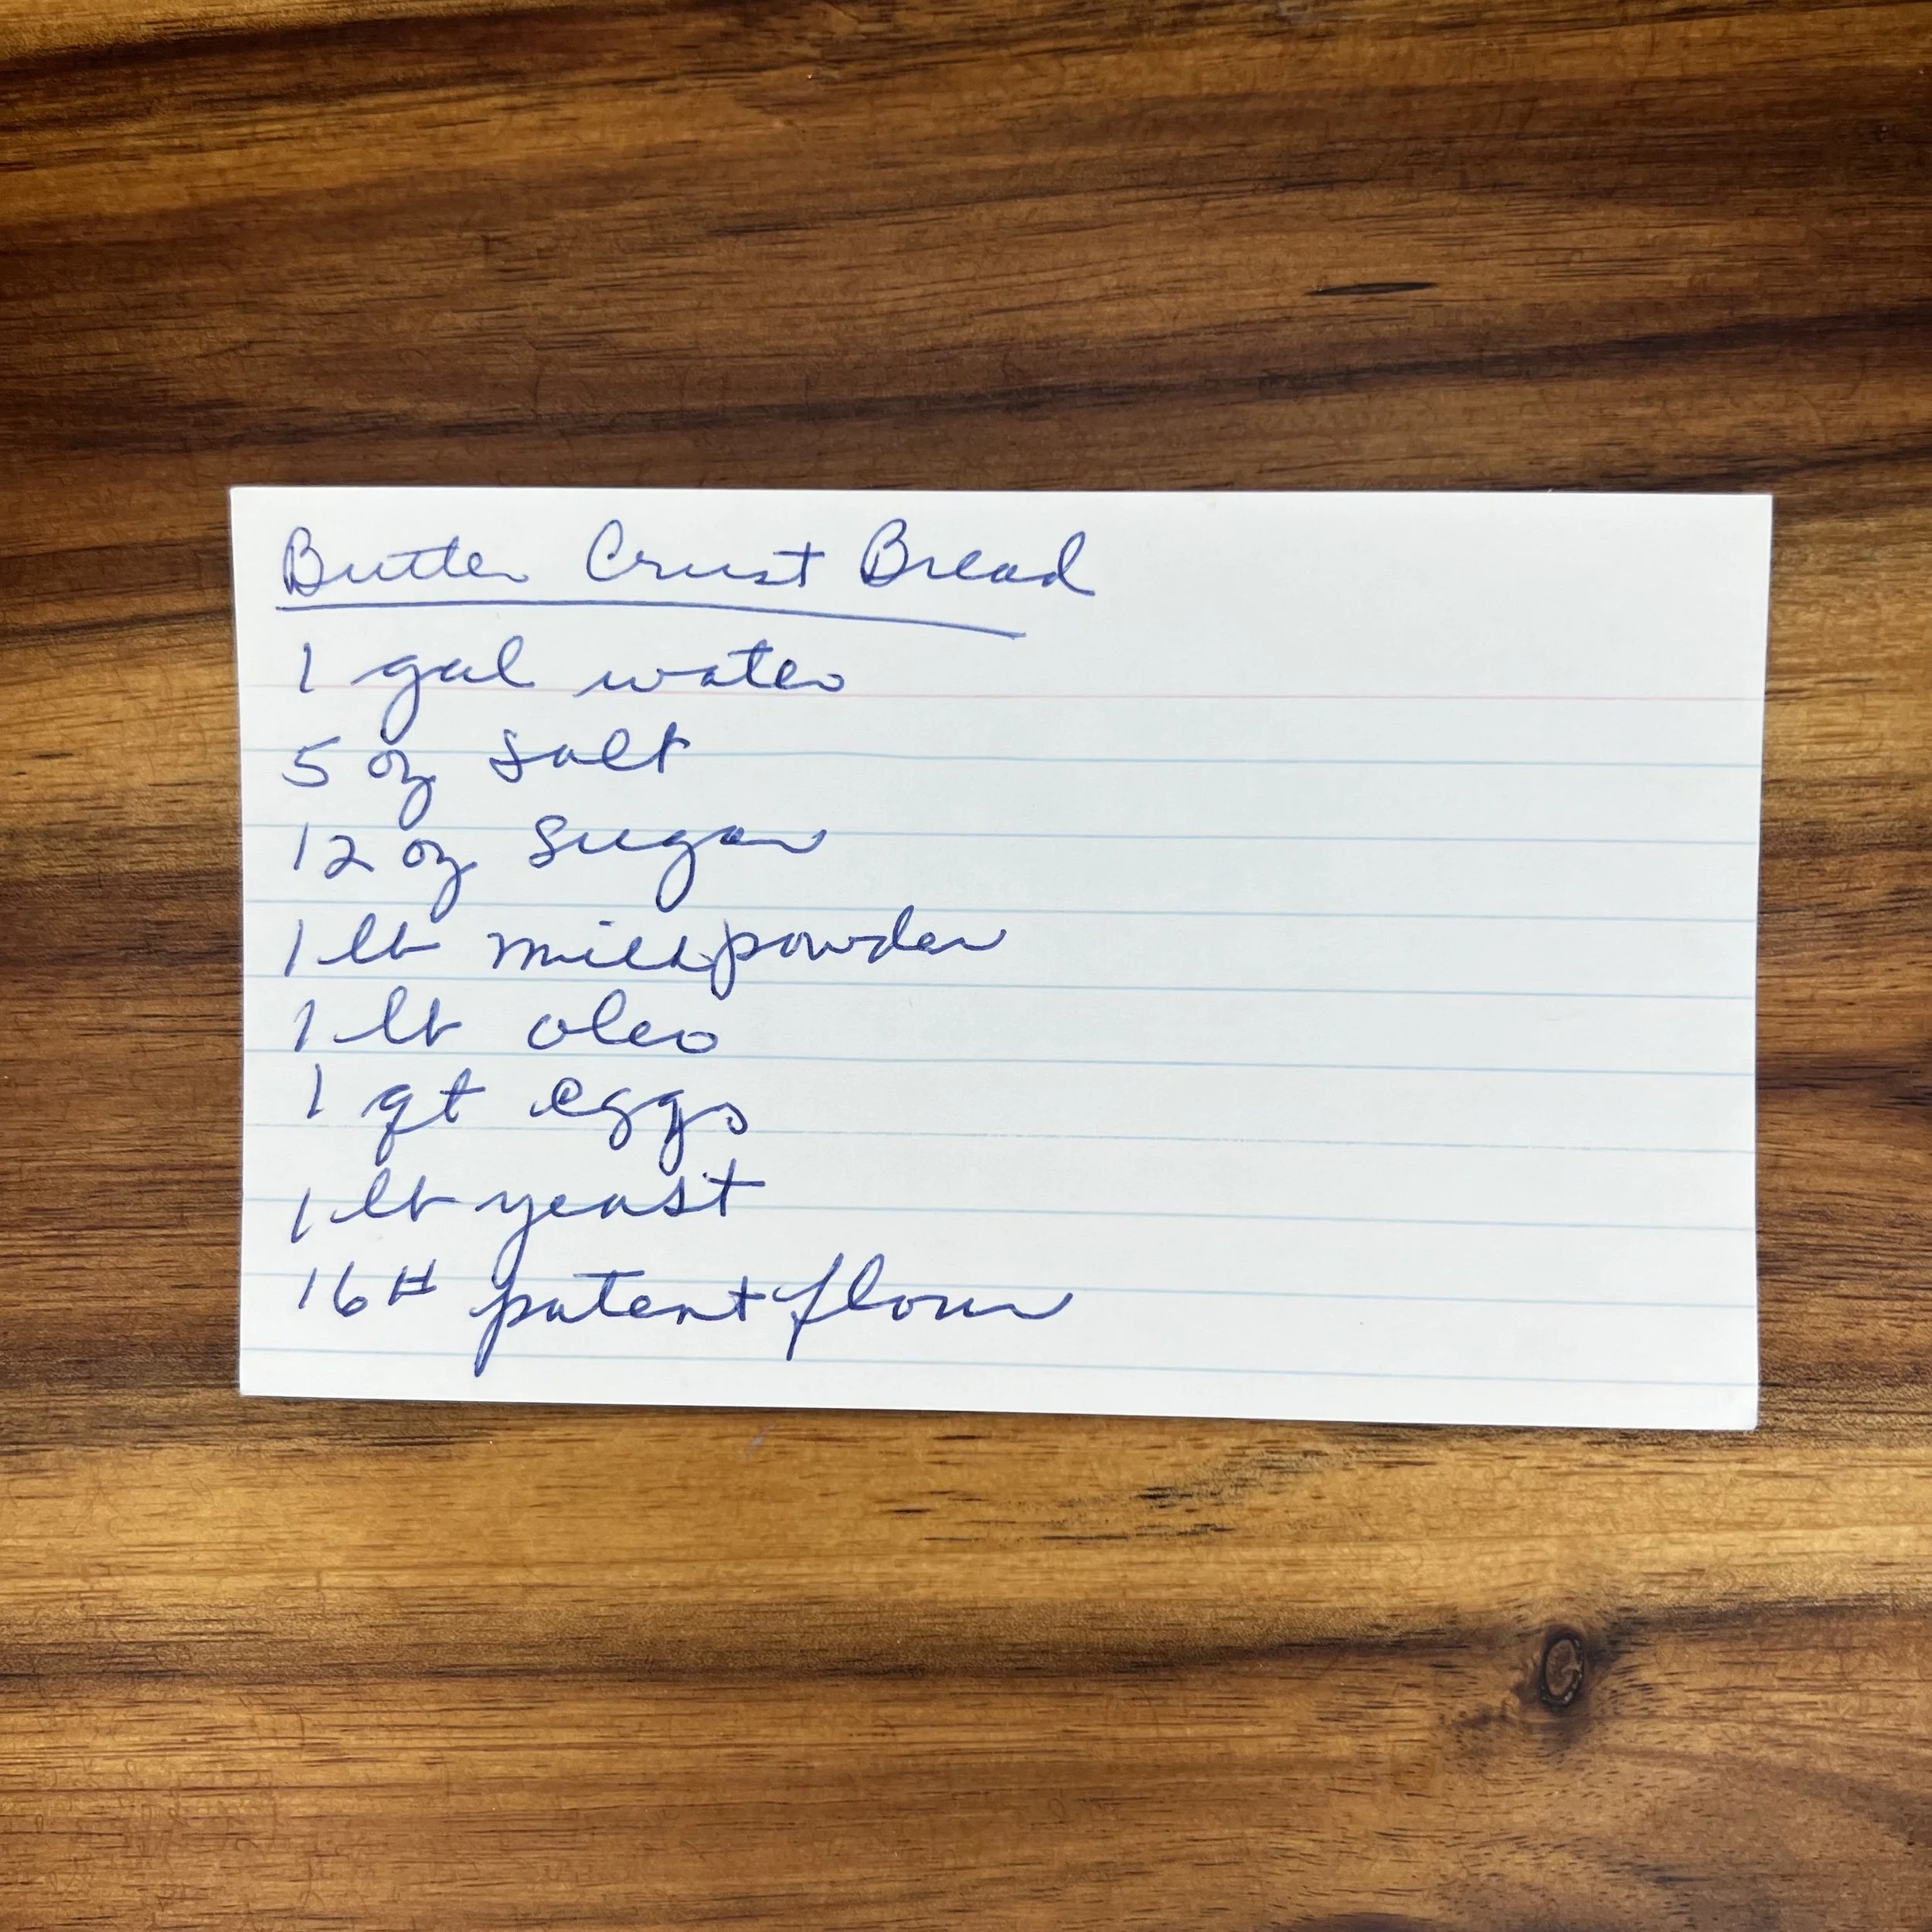 Butter Crust Bread
1 gal water
5 oz salt
12 oz sugar
1 lb milk powder
1 lb oleo
1 qt eggs
1 lb yeast
16 # patent flour